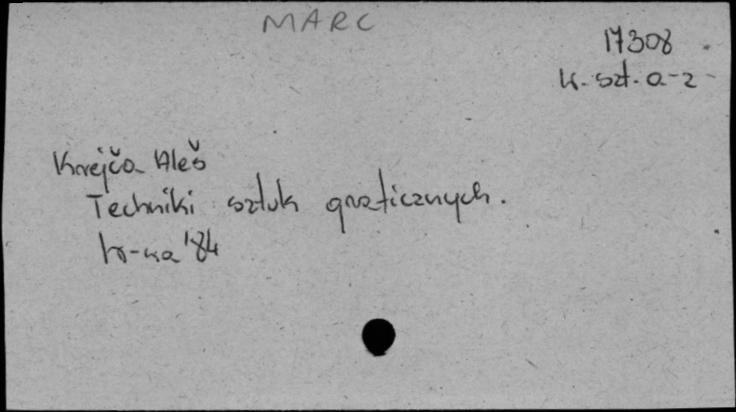 MARC
17308
k. szt. a-z
Krejča Aleš
Techniki sztuk graficznych.
W-wa '84